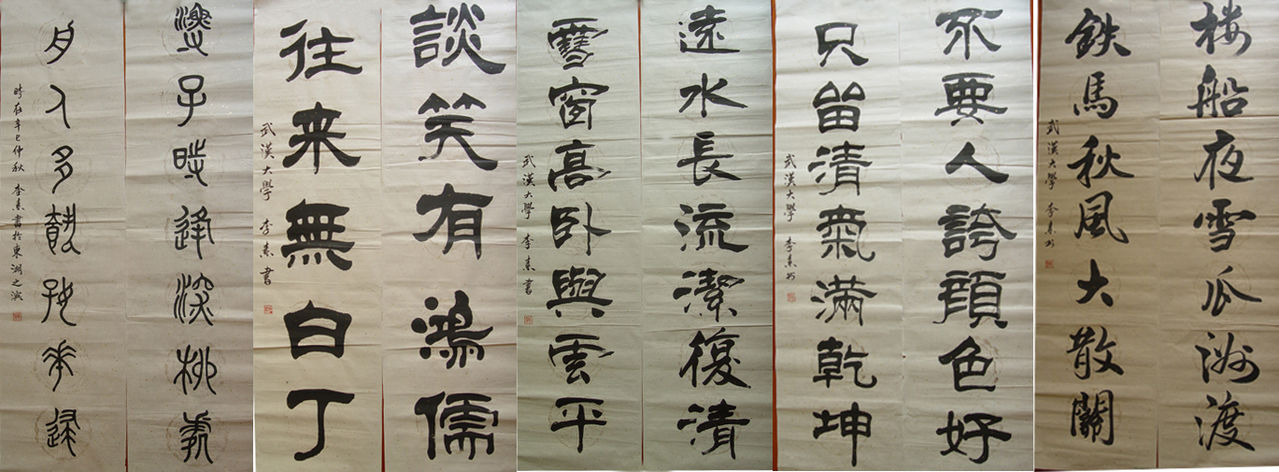 楼船夜雪瓜洲渡
鉄馬秋風大散關
武漢大學 李素书
不要人誇顔色好
只留清氣滿乾坤
武漢大學 李素书
遠水長流潔復清
雪窗高卧與雲平
武漢大學 李素書
談笑有鴻儒
往来無白丁
武漢大學 李素書
子時逢深處
人多花
時在辛巳仲秋 李素書於東湖之濱